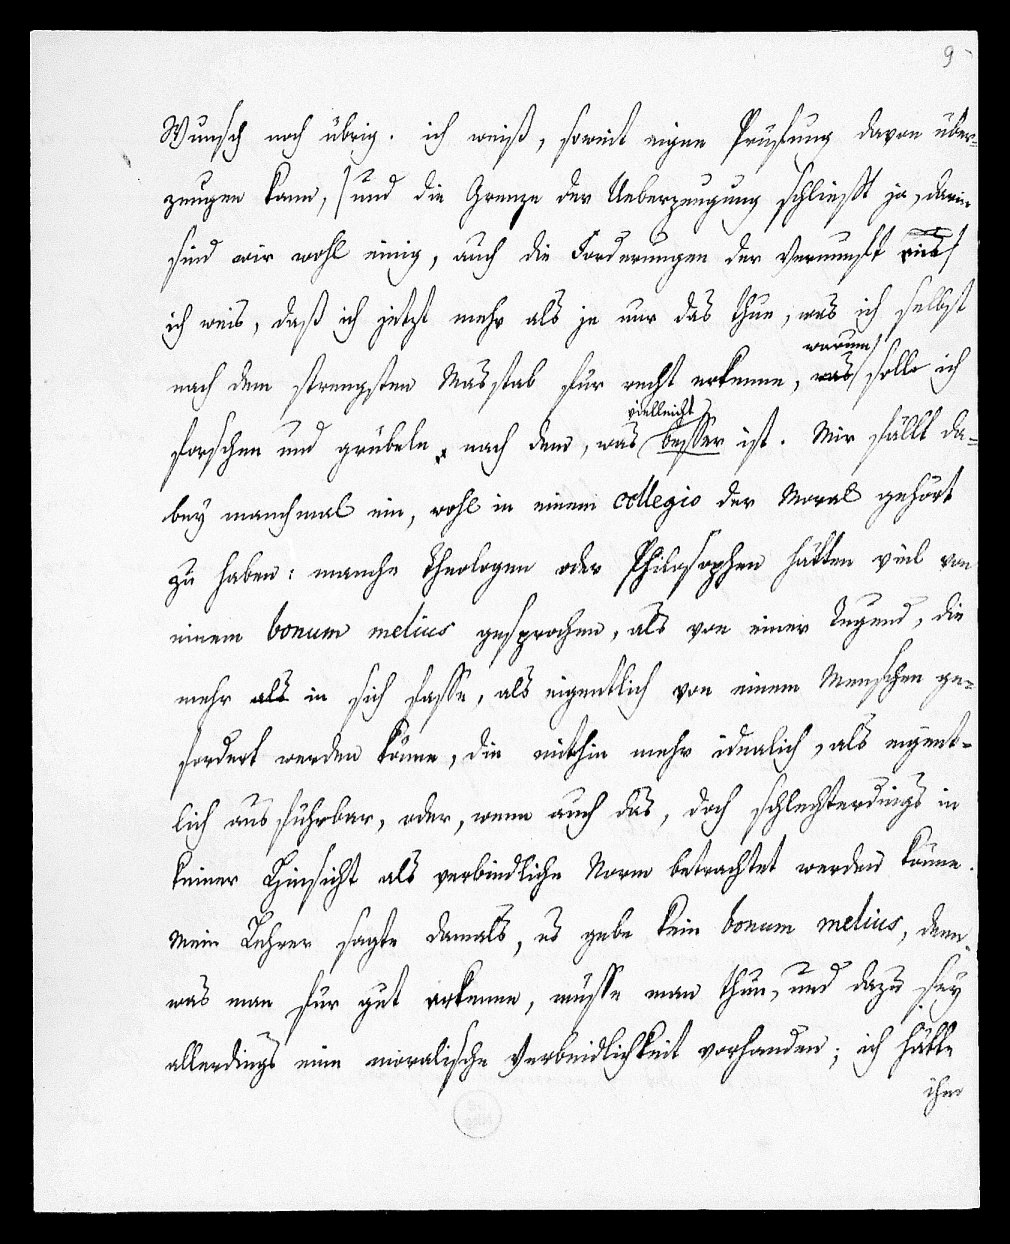 9
Wunsch noch übrig. ich weiß, soweit eigne Prüfung davon über-
zeugen kann, /und die Grenze der Ueberzeugung schließt ja, darin
sind wir wohl einig, auch die Forderungen der Vernunft ein/
ich weis, daß ich jetzt mehr als je nur das thue, was ich selbst
warum
nach dem strengsten Masstab für recht erkenne, was solle ich
vielleicht
forschen und grübeln, nach dem, was besser ist. Mir fällt da-
bey manchmal ein, wohl in einem collegio der Moral gehört
zu haben: manche Theologen oder Philosophen hätten viel von
einem bonum melius gesprochen, als von einer Tugend, die
mehr als in sich fasse, als eigentlich von einem Menschen ge-
fordert werden könne, die mithin mehr idealisch, als eigent-
lich ausführbar, oder, wenn auch das, doch schlechterdings in
keiner Hinsicht als verbindliche Norm betrachtet werden könne.
Mein Lehrer sagte damals, es gebe kein bonum melius, denn
was man für gut erkenne, müsse man thun, und dazu sey
allerdings eine moralische Verbindlichkeit vorhanden; ich hätte
ihm